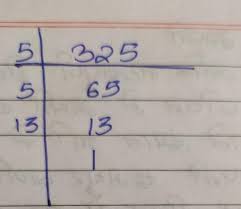 5 325
5 65
13 13
1